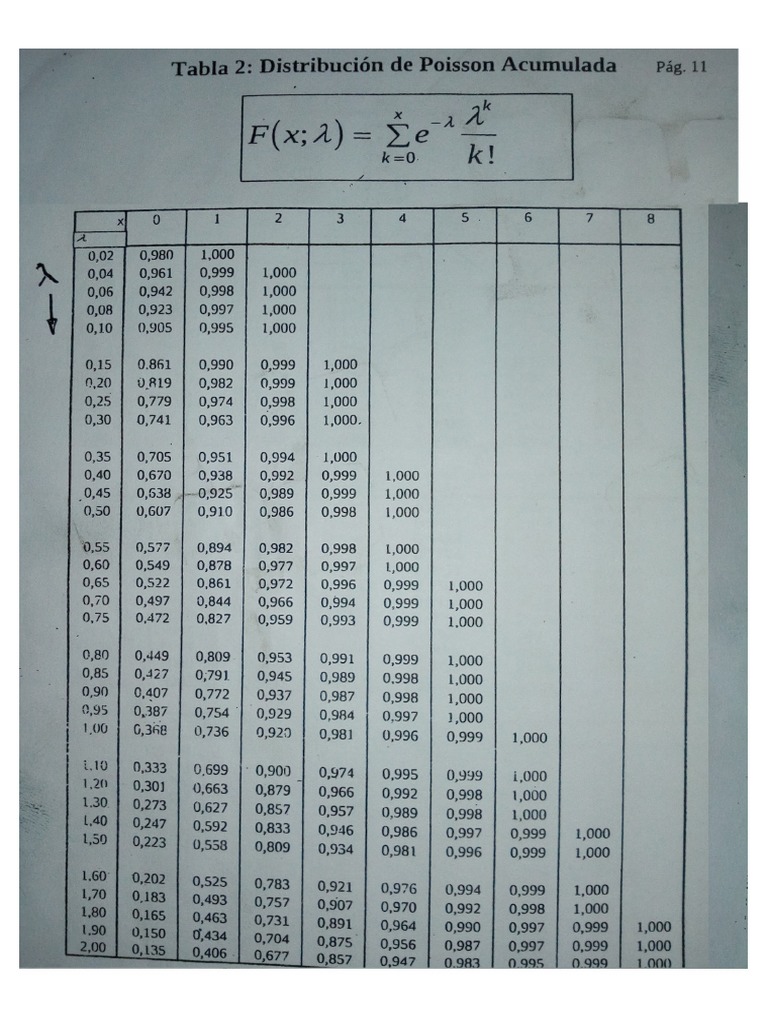 Tabla 2: Distribución de Poisson Acumulada Pág. 11
F(x; λ) = x Σ k=0 e^−λ λ^k / k!
x 0 1 2 3 4 5 6 7 8
λ
λ
0,02 0,980 1,000
0,04 0,961 0,999 1,000
0,06 0,942 0,998 1,000
0,08 0,923 0,997 1,000
0,10 0,905 0,995 1,000
0,15 0.861 0,990 0,999 1,000
0,20 0,819 0,982 0,999 1,000
0,25 0,779 0,974 0,998 1,000
0,30 0,741 0,963 0,996 1,000
0,35 0,705 0,951 0,994 1,000
0,40 0,670 0,938 0,992 0,999 1,000
0,45 0,638 0,925 0,989 0,999 1,000
0,50 0,607 0,910 0,986 0,998 1,000
0,55 0,577 0,894 0,982 0,998 1,000
0,60 0,549 0,878 0,977 0,997 1,000
0,65 0,522 0,861 0,972 0,996 0,999 1,000
0,70 0,497 0,844 0,966 0,994 0,999 1,000
0,75 0,472 0,827 0,959 0,993 0,999 1,000
0,80 0,449 0,809 0,953 0,991 0,999 1,000
0,85 0,427 0,791 0,945 0,989 0,998 1,000
0,90 0,407 0,772 0,937 0,987 0,998 1,000
0,95 0,387 0,754 0,929 0,984 0,997 1,000
1,00 0,368 0,736 0,920 0,981 0,996 0,999 1,000
1,10 0,333 0,699 0,900 0,974 0,995 0,999 1,000
1,20 0,301 0,663 0,879 0,966 0,992 0,998 1,000
1,30 0,273 0,627 0,857 0,957 0,989 0,998 1,000
1,40 0,247 0,592 0,833 0,946 0,986 0,997 0,999 1,000
1,50 0,223 0,558 0,809 0,934 0,981 0,996 0,999 1,000
1,60 0,202 0,525 0,783 0,921 0,976 0,994 0,999 1,000
1,70 0,183 0,493 0,757 0,907 0,970 0,992 0,998 1,000
1,80 0,165 0,463 0,731 0,891 0,964 0,990 0,997 0,999 1,000
1,90 0,150 0,434 0,704 0,875 0,956 0,987 0,997 0,999 1,000
2,00 0,135 0,406 0,677 0,857 0,947 0.983 0.995 0.999 1.000